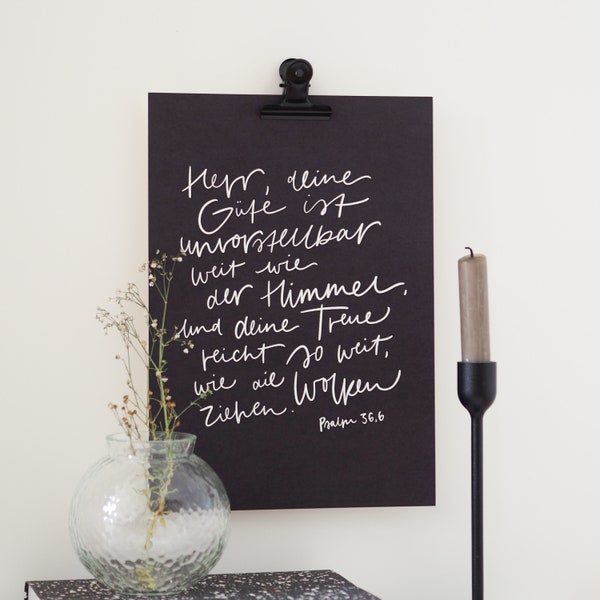 Herr, deine
Güte ist
unvorstellbar
weit wie
der Himmel,
und deine Treue
reicht so weit,
wie die Wolken
ziehen.
Psalm 36,6